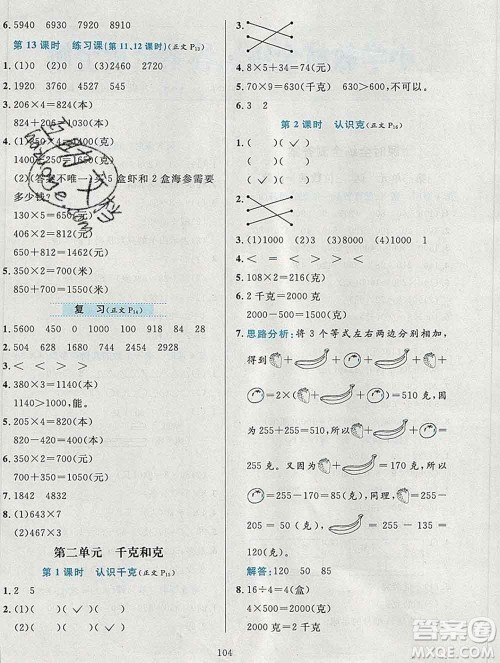 6. 5940 6930 6320
第 13 课时 练习课(第 11、12 课时)(正文 P13)
1. (1)0 (2)0 (3)2460 2720
2. 1920 3760 4515 815
3. 206×4=824(本)
824+206=1030(本)
4. (1)250×4=1000(元)
1000+400=1400(元)
(2)(答案不唯一)买 5 盒虾和 2 盒海参需要
多少钱?
130×5=650(元)
406×2=812(元)
650+812=1462(元)
5. 350×2=700(米)
850+700=1550(米)
复 习(正文 P14)
1. 5600 450 0 1000 918 84
2. 544 5130 2428 928 2877
3. < < > >
4. 380×3=1140(本)
1140>1000,能。
5. 205×4=820(本)
820-420=400(本)
6. 50×7=350(元)
350+300=650(元)
7. 1648 4832
8. (1)346×2
(2)467×3
第二单元 千克和克
第 1 课时 认识千克(正文 P15)
1. 2 5
2. (1)( )( )( )(√)
(2)(√)( )( )( )
3.
4. 8×5+34=74(千克)
5. 70×9=630(千克) 630>600,不可以。
6. 3 2
第 2 课时 认识克(正文 P16)
1. ( ) ( ) (√)
(√) (√) ( )
2.
3. (1)1000 (2)4 (3)8000 (4)6
4. < = < > < >
5. 108×2=216(克)
6. 2 千克=2000 克
2000-1200=800(克)
7. 思路分析:将 3 个等式左右两边分别相加,
得到 + + + + +
=2×( + + )=510 克,因
为 255+255=510,所以 + +
=255 克。又因为 + =170 克,所以
=255-170=85 克,同理, =255-
205=50 克, =255-135=120 克。
解答:120 50 85
8. 16÷4=4(盒)
4×500=2000(克)
2000 克=2 千克
104